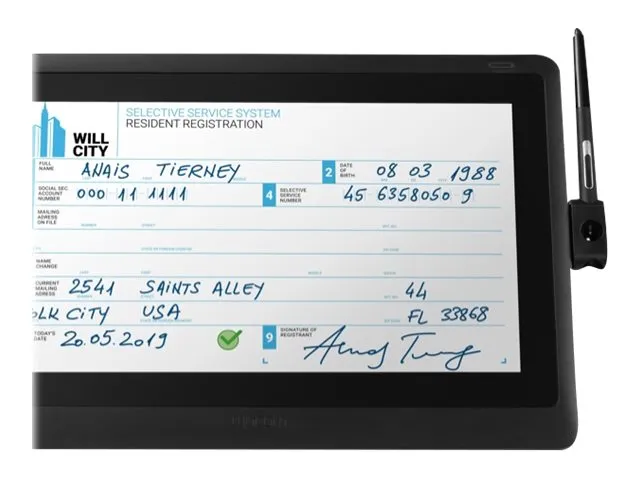 WILL CITY
SELECTIVE SERVICE SYSTEM
RESIDENT REGISTRATION
FULL NAME ANAIS TIERNEY 2 DATE OF BIRTH 08 03 1988
SOCIAL SEC. ACCOUNT NUMBER 000 11 1111 4 SELECTIVE SERVICE NUMBER 45 6358050 9
MAILING ADRESS ON FILE
NAME CHANGE
CURRENT MAILING ADRESS 2541 SAINTS ALLEY 44
OLK CITY USA FL 33868
TODAY'S DATE 20.05.2019 9 SIGNATURE OF REGISTRANT